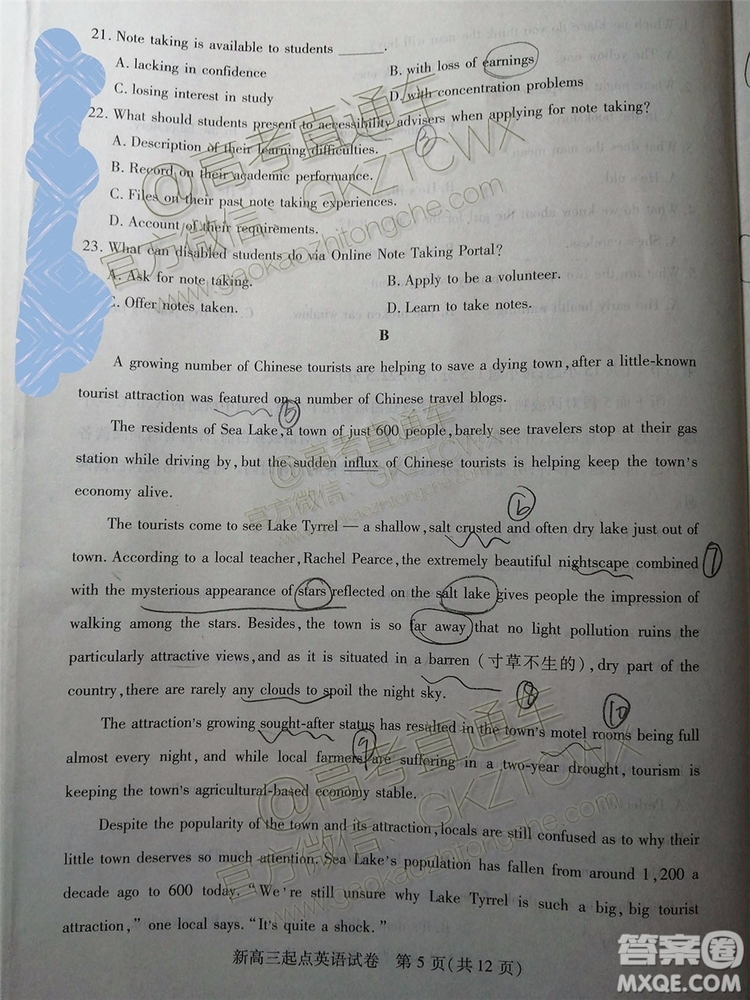 21. Note taking is available to students ______.
A. lacking in confidence B. with loss of earnings
C. losing interest in study D. with concentration problems
22. What should students present to accessibility advisers when applying for note taking?
A. Description of their learning difficulties.
B. Record on their academic performance.
C. Files on their past note taking experiences.
D. Account of their requirements.
23. What can disabled students do via Online Note Taking Portal?
A. Ask for note taking. B. Apply to be a volunteer.
C. Offer notes taken. D. Learn to take notes.
B
A growing number of Chinese tourists are helping to save a dying town, after a little-known
tourist attraction was featured on a number of Chinese travel blogs.
The residents of Sea Lake, a town of just 600 people, barely see travelers stop at their gas
station while driving by, but the sudden influx of Chinese tourists is helping keep the town's
economy alive.
The tourists come to see Lake Tyrrel — a shallow, salt crusted and often dry lake just out of
town. According to a local teacher, Rachel Pearce, the extremely beautiful nightscape combined
with the mysterious appearance of stars reflected on the salt lake gives people the impression of
walking among the stars. Besides, the town is so far away that no light pollution ruins the
particularly attractive views, and as it is situated in a barren (寸草不生的), dry part of the
country, there are rarely any clouds to spoil the night sky.
The attraction's growing sought-after status has resulted in the town's motel rooms being full
almost every night, and while local farmers are suffering in a two-year drought, tourism is
keeping the town's agricultural-based economy stable.
Despite the popularity of the town and its attraction, locals are still confused as to why their
little town deserves so much attention. Sea Lake's population has fallen from around 1,200 a
decade ago to 600 today. "We're still unsure why Lake Tyrrel is such a big, big tourist
attraction," one local says. "It's quite a shock."
新高三起点英语试卷 第 5 页(共 12 页)
@高考直通车
官方微信：GKZTCWX
www.gaokaozhitongche.com
@高考直通车
官方微信：GKZTCWX
www.gaokaozhitongche.com
@高考直通车
官方微信：GKZTCWX
www.gaokaozhitongche.com
5
6
7
8
9
10
答案圈
MXQE.COM